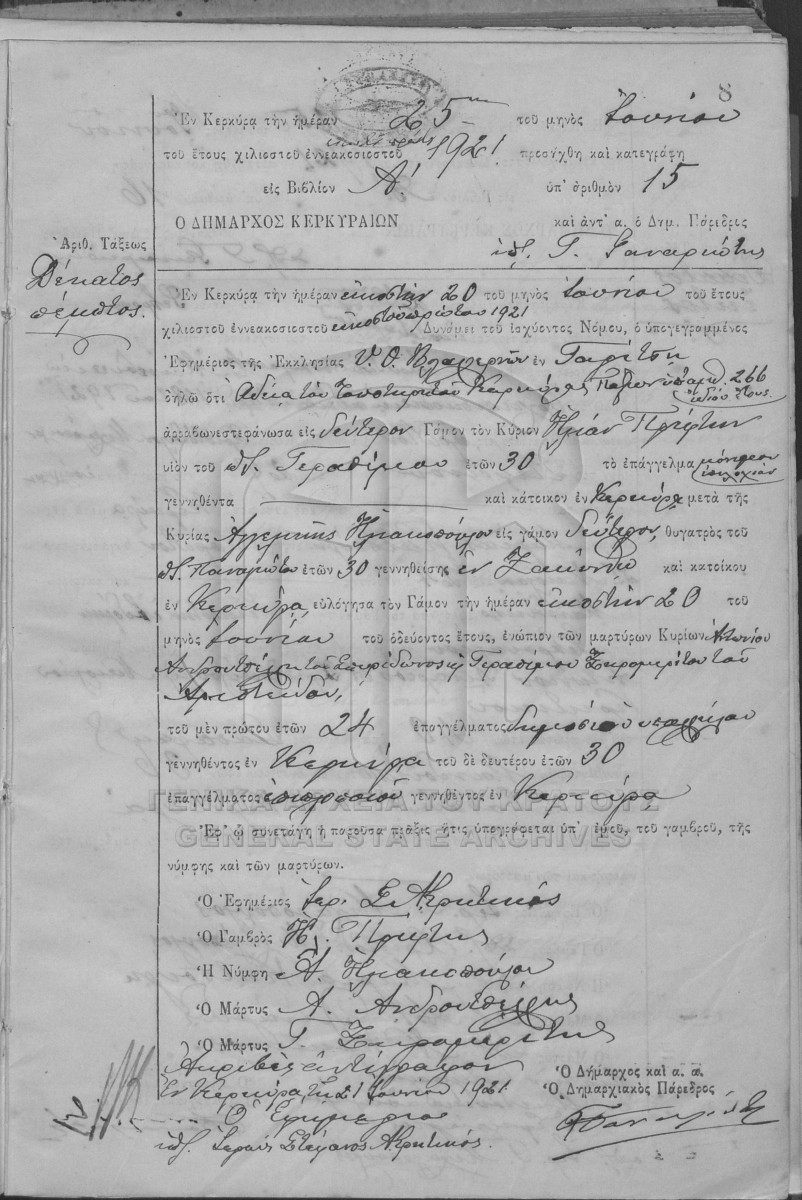 8
Ἐν Κερκύρᾳ τὴν ἡμέραν 25ην τοῦ μηνὸς Ἰουνίου
τοῦ ἔτους χιλιοστοῦ ἐννεακοσιοστοῦ 1921 προσήχθη καὶ κατεγράφη
εἰς Βιβλίον Α΄. ὑπ' ἀριθμὸν 15
Ο ΔΗΜΑΡΧΟΣ ΚΕΡΚΥΡΑΙΩΝ καὶ ἀντ' α. ὁ Δημ. Πάρεδρις
Ἀριθ. Τάξεως
Δέκατος
πέμπτος.
Ἐν Κερκύρᾳ τὴν ἡμέραν εἰκοστὴν 20 τοῦ μηνὸς Ἰουνίου τοῦ ἔτους
χιλιοστοῦ ἐννεακοσιοστοῦ εἰκοστοῦ πρώτου 1921 Δυνάμει τοῦ ἰσχύοντος Νόμου, ὁ ὑπογεγραμμένος
Ἐφημέριος τῆς Ἐκκλησίας Υ. Θ. Βλαχερνῶν ἐν Γαρίτσῃ
δηλῶ ὅτι Ἀδείᾳ τοῦ Τοποτηρητοῦ Κερκύρας 266
ἰδίου ἔτους.
ἀρραβωνεστεφάνωσα εἰς δεύτερον Γάμον τὸν Κύριον Ἠλίαν Πρίφτην
υἱὸν τοῦ Γερασίμου ἐτῶν 30 τὸ ἐπάγγελμα
γεννηθέντα καὶ κάτοικον ἐν Κερκύρᾳ μετὰ τῆς
Κυρίας Ἀγγελικῆς Ἠλιακοπούλου εἰς γάμον δεύτερον, θυγατρὸς τοῦ
Παναγιώτου ἐτῶν 30 γεννηθείσης ἐν Ζακύνθῳ καὶ κατοίκου
ἐν Κερκύρᾳ, εὐλόγησα τὸν Γάμον τὴν ἡμέραν εἰκοστὴν 20 τοῦ
μηνὸς Ἰουνίου τοῦ ὁδεύοντος ἔτους, ἐνώπιον τῶν μαρτύρων Κυρίων Ἀντωνίου
Ἀνδρουτσέλη τοῦ Σπυρίδωνος κ Γερασίμου Ξηρομερίτου τοῦ
Ἀριστείδου,
τοῦ μὲν πρώτου ἐτῶν 24 ἐπαγγέλματος δημοσίου ὑπαλλήλου
γεννηθέντος ἐν Κερκύρᾳ τοῦ δὲ δευτέρου ἐτῶν 30
ἐπαγγέλματος γεννηθέντος ἐν Κερκύρᾳ
ΓΕΝΙΚΑ ΑΡΧΕΙΑ ΤΟΥ ΚΡΑΤΟΥΣ
GENERAL STATE ARCHIVES
Ἐφ' ᾧ συνετάγη ἡ παροῦσα πρᾶξις ἥτις ὑπογράφεται ὑπ' ἐμοῦ, τοῦ γαμβροῦ, τῆς
νύμφης καὶ τῶν μαρτύρων.
Ὁ Ἐφημέριος Ἱερ. Σ. Κρητικός
Ὁ Γαμβρὸς Η. Πρίφτης
Ἡ Νύμφη Α. Ἠλιακοπούλου
Ὁ Μάρτυς Α. Ἀνδρουτσέλης
Ὁ Μάρτυς Γ. Ξηρομερίτης
Ἀκριβὲς ἀντίγραφον
Ἐν Κερκύρᾳ τῇ 21 Ἰουνίου 1921
Ὁ Ἐφημέριος
Ἱερεὺς Στέφανος Κρητικός.
Ὁ Δήμαρχος καὶ α. α.
Ὁ Δημαρχιακὸς Πάρεδρος